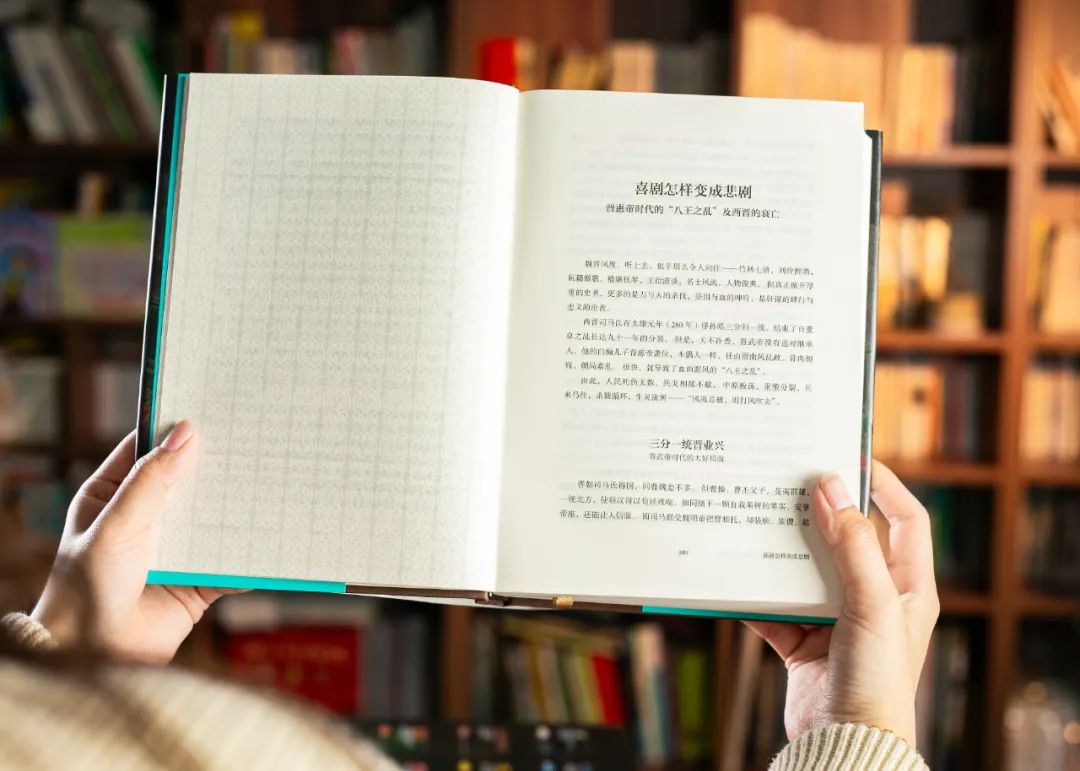 喜剧怎样变成悲剧
晋惠帝时代的“八王之乱”及西晋的衰亡
魏晋风度，听上去，似乎那么令人向往——竹林七贤，刘伶醉酒，
阮籍傲歌，嵇康抚琴，王衍清谈，名士风流，人物俊爽。但真正掀开厚
重的史书，更多的是刀与火的杀伐，
忠义的沦丧。
西晋司马氏在太康元年（280年）俘孙皓三分归一统，结束了自董
卓之乱长达九十一年的分裂。但是，天不祚晋，晋武帝没有选对继承
人，他的白痴儿子晋惠帝袭位，木偶人一样，任由贾南风乱政，骨肉相
残，朝局紊乱。很快，就导致了血雨腥风的“八王之乱”。
由此，人民死伤无数，兵戈相接不歇，中原板荡，重塑分裂，兵
来马往，杀戮循环，生灵涂炭——“风流总被，雨打风吹去”。
三分一统晋业兴
晋武帝时代的大好局面
晋朝司马氏得国，同曹魏差不多。但曹操、曹丕父子，芟夷群雄，
一统北方，使刘汉得以苟延残喘，如同栽下一颗自栽果树的果实，安享
帝座，还能让人信服。而司马懿受魏明帝把臂相托，却装病、装傻，
001
喜剧怎样变成悲剧